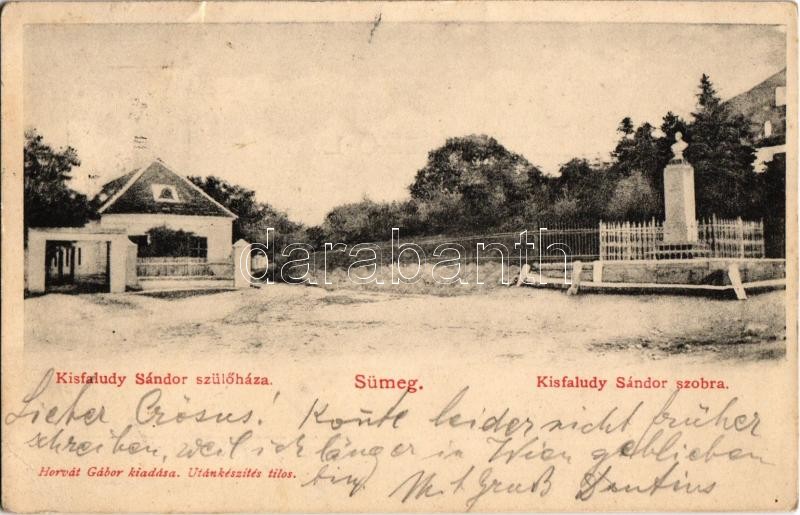 darabanth.com
Kisfaludy Sándor szülőháza. Sümeg. Kisfaludy Sándor szobra.
Lieber Crösus! Konnte leider nicht früher
schreiben, weil ich länger in Wien geblieben
Horvát Gábor kiadása. Utánkészítés tilos.
bin. Mit Gruß